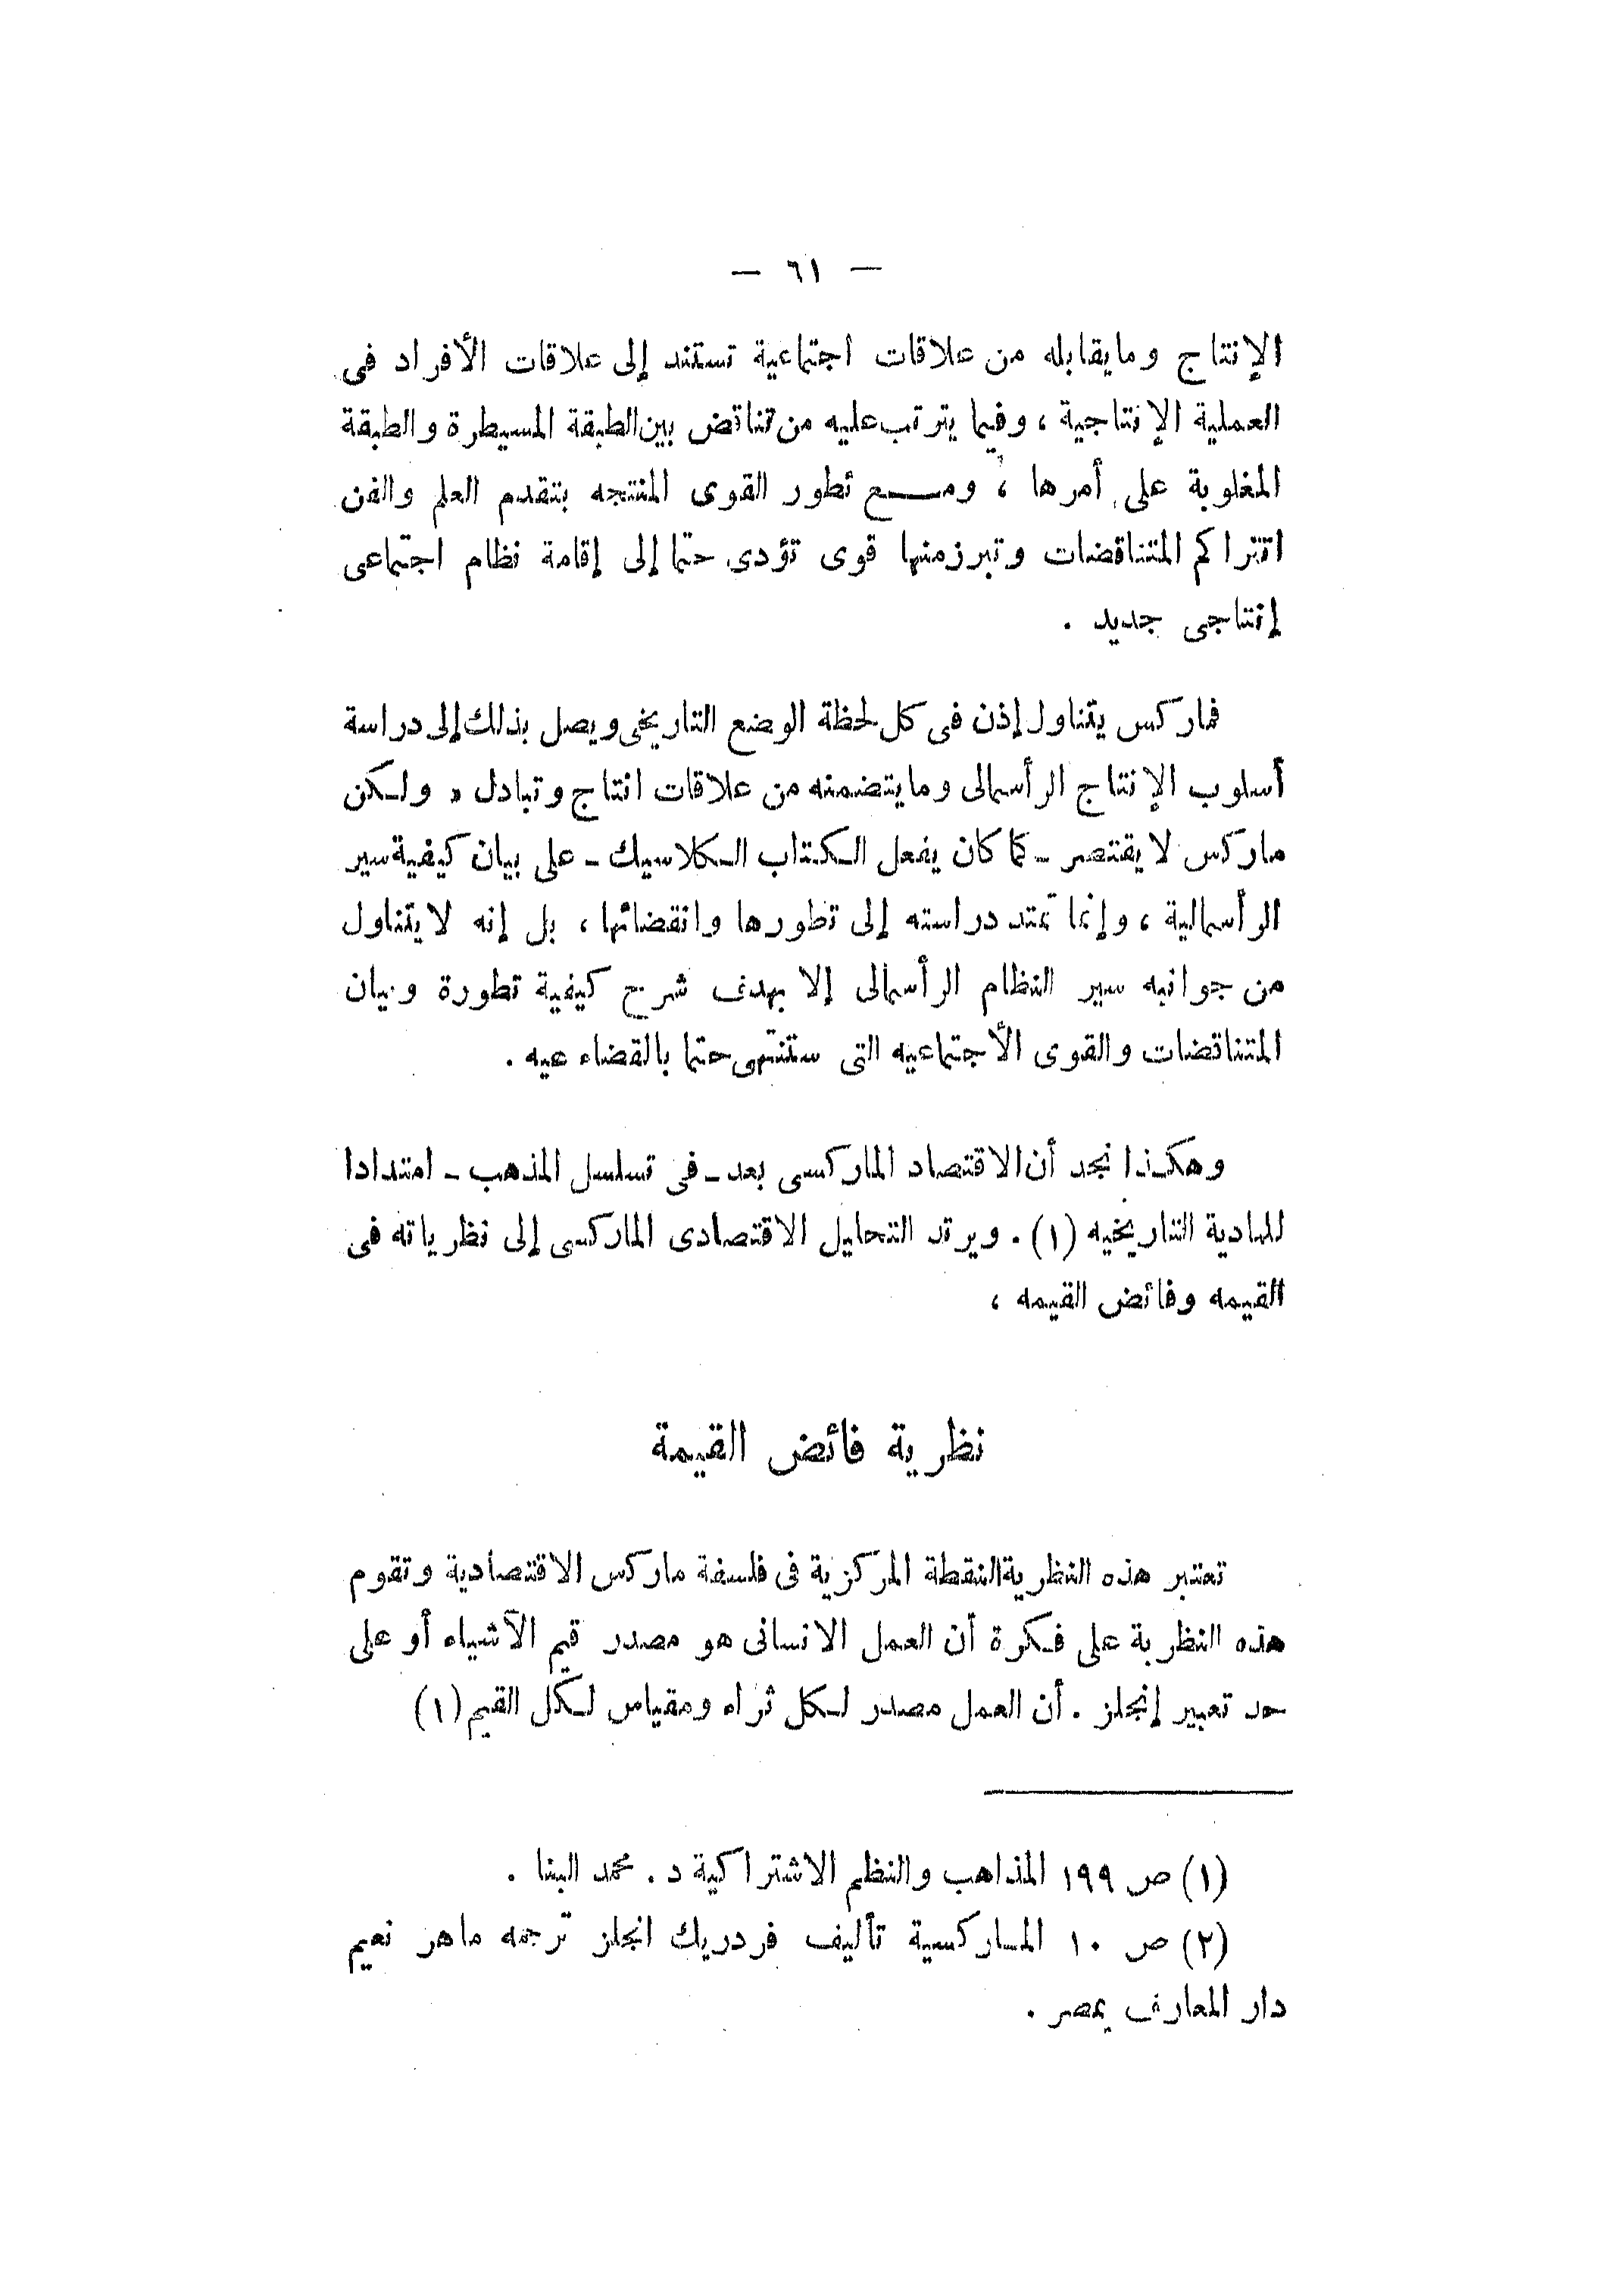 — ٦١ —
الإنتاج ومايقابله من علاقات اجتماعية تستند إلى علاقات الأفراد فى
العملية الإنتاجية ، وفيما يترتب عليه من تناقض بين الطبقة المسيطرة والطبقة
المغلوبة على أمرها ، ومـــع تطور القوى المنتجه بتقدم العلم والفن
اتتراكم المتناقضات وتبرز منها قوى تؤدى حتما إلى إقامة نظام اجتماعى
إنتاجى جديد .
فماركس يتناول إذن فى كل لحظة الوضع التاريخى ويصل بذلك إلى دراسة
أسلوب الإنتاج الرأسمالى ومايتضمنه من علاقات انتاج وتبادل ، ولكن
ماركس لا يقتصر ـ كما كان يفعل الكتاب الكلاسيك ـ على بيان كيفية سير
الرأسمالية ، وإنما تمتد دراسته إلى تطورها وانقضائها ، بل إنه لا يتناول
من جوانبه سير النظام الرأسمالى إلا بهدف شرح كيفية تطورة وبيان
المتناقضات والقوى الأجتماعيه التى ستنتهى حتما بالقضاء عيه .
وهكذا نجد أن الاقتصاد الماركسى بعد ـ فى تسلسل المذهب ـ امتدادا
للمادية التاريخيه (١) . ويرتد التحليل الاقتصادى الماركسى إلى نظرياته فى
القيمه وفائض القيمه ،
نظرية فائض القيمة
تعتبر هذه النظرية النقطة المركزية فى فلسفة ماركس الاقتصادية وتقوم
هذه النظرية على فكرة أن العمل الانسانى هو مصدر قيم الأشياء أو على
حد تعبير إنجلز . أن العمل مصدر لكل ثراء ومقياس لكل القيم (١)
(١) ص ١٩٩ المذاهب والنظم الاشتراكية د . محمد البنا .
(٢) ص ١٠ الماركسية تأليف فردريك انجلز ترجمه ماهر نعيم
دار المعارف بمصر .